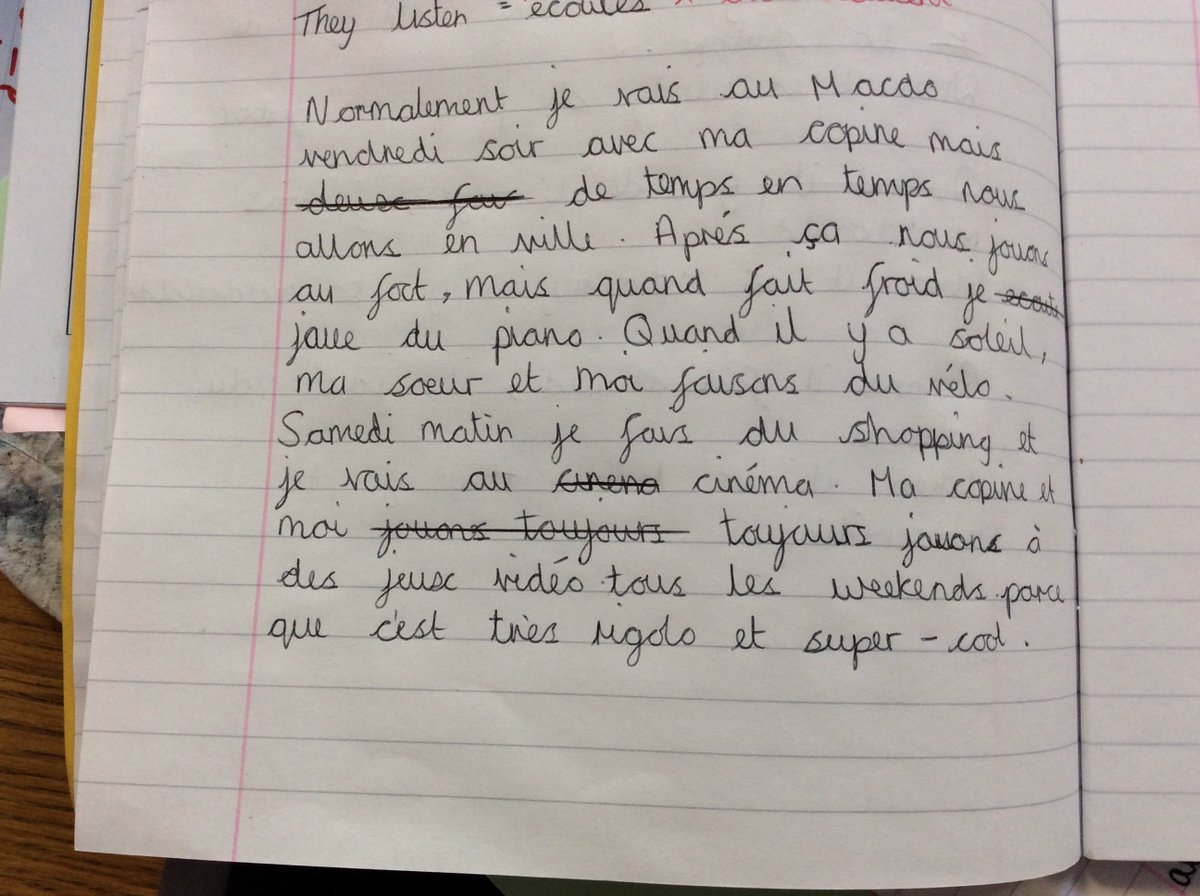 They listen = écoutes
Normalement je vais au Macdo
vendredi soir avec ma copine mais
de temps en temps nous
allons en ville. Aprés ça nous jouons
au foot, mais quand fait froid je
joue du piano. Quand il y a soleil,
ma soeur et moi faisons du vélo.
Samedi matin je fais du shopping et
je vais au cinema cinéma. Ma copine et
moi jouons toujours toujours jouons à
des jeux vidéo tous les weekends parce
que c'est très rigolo et super-cool.